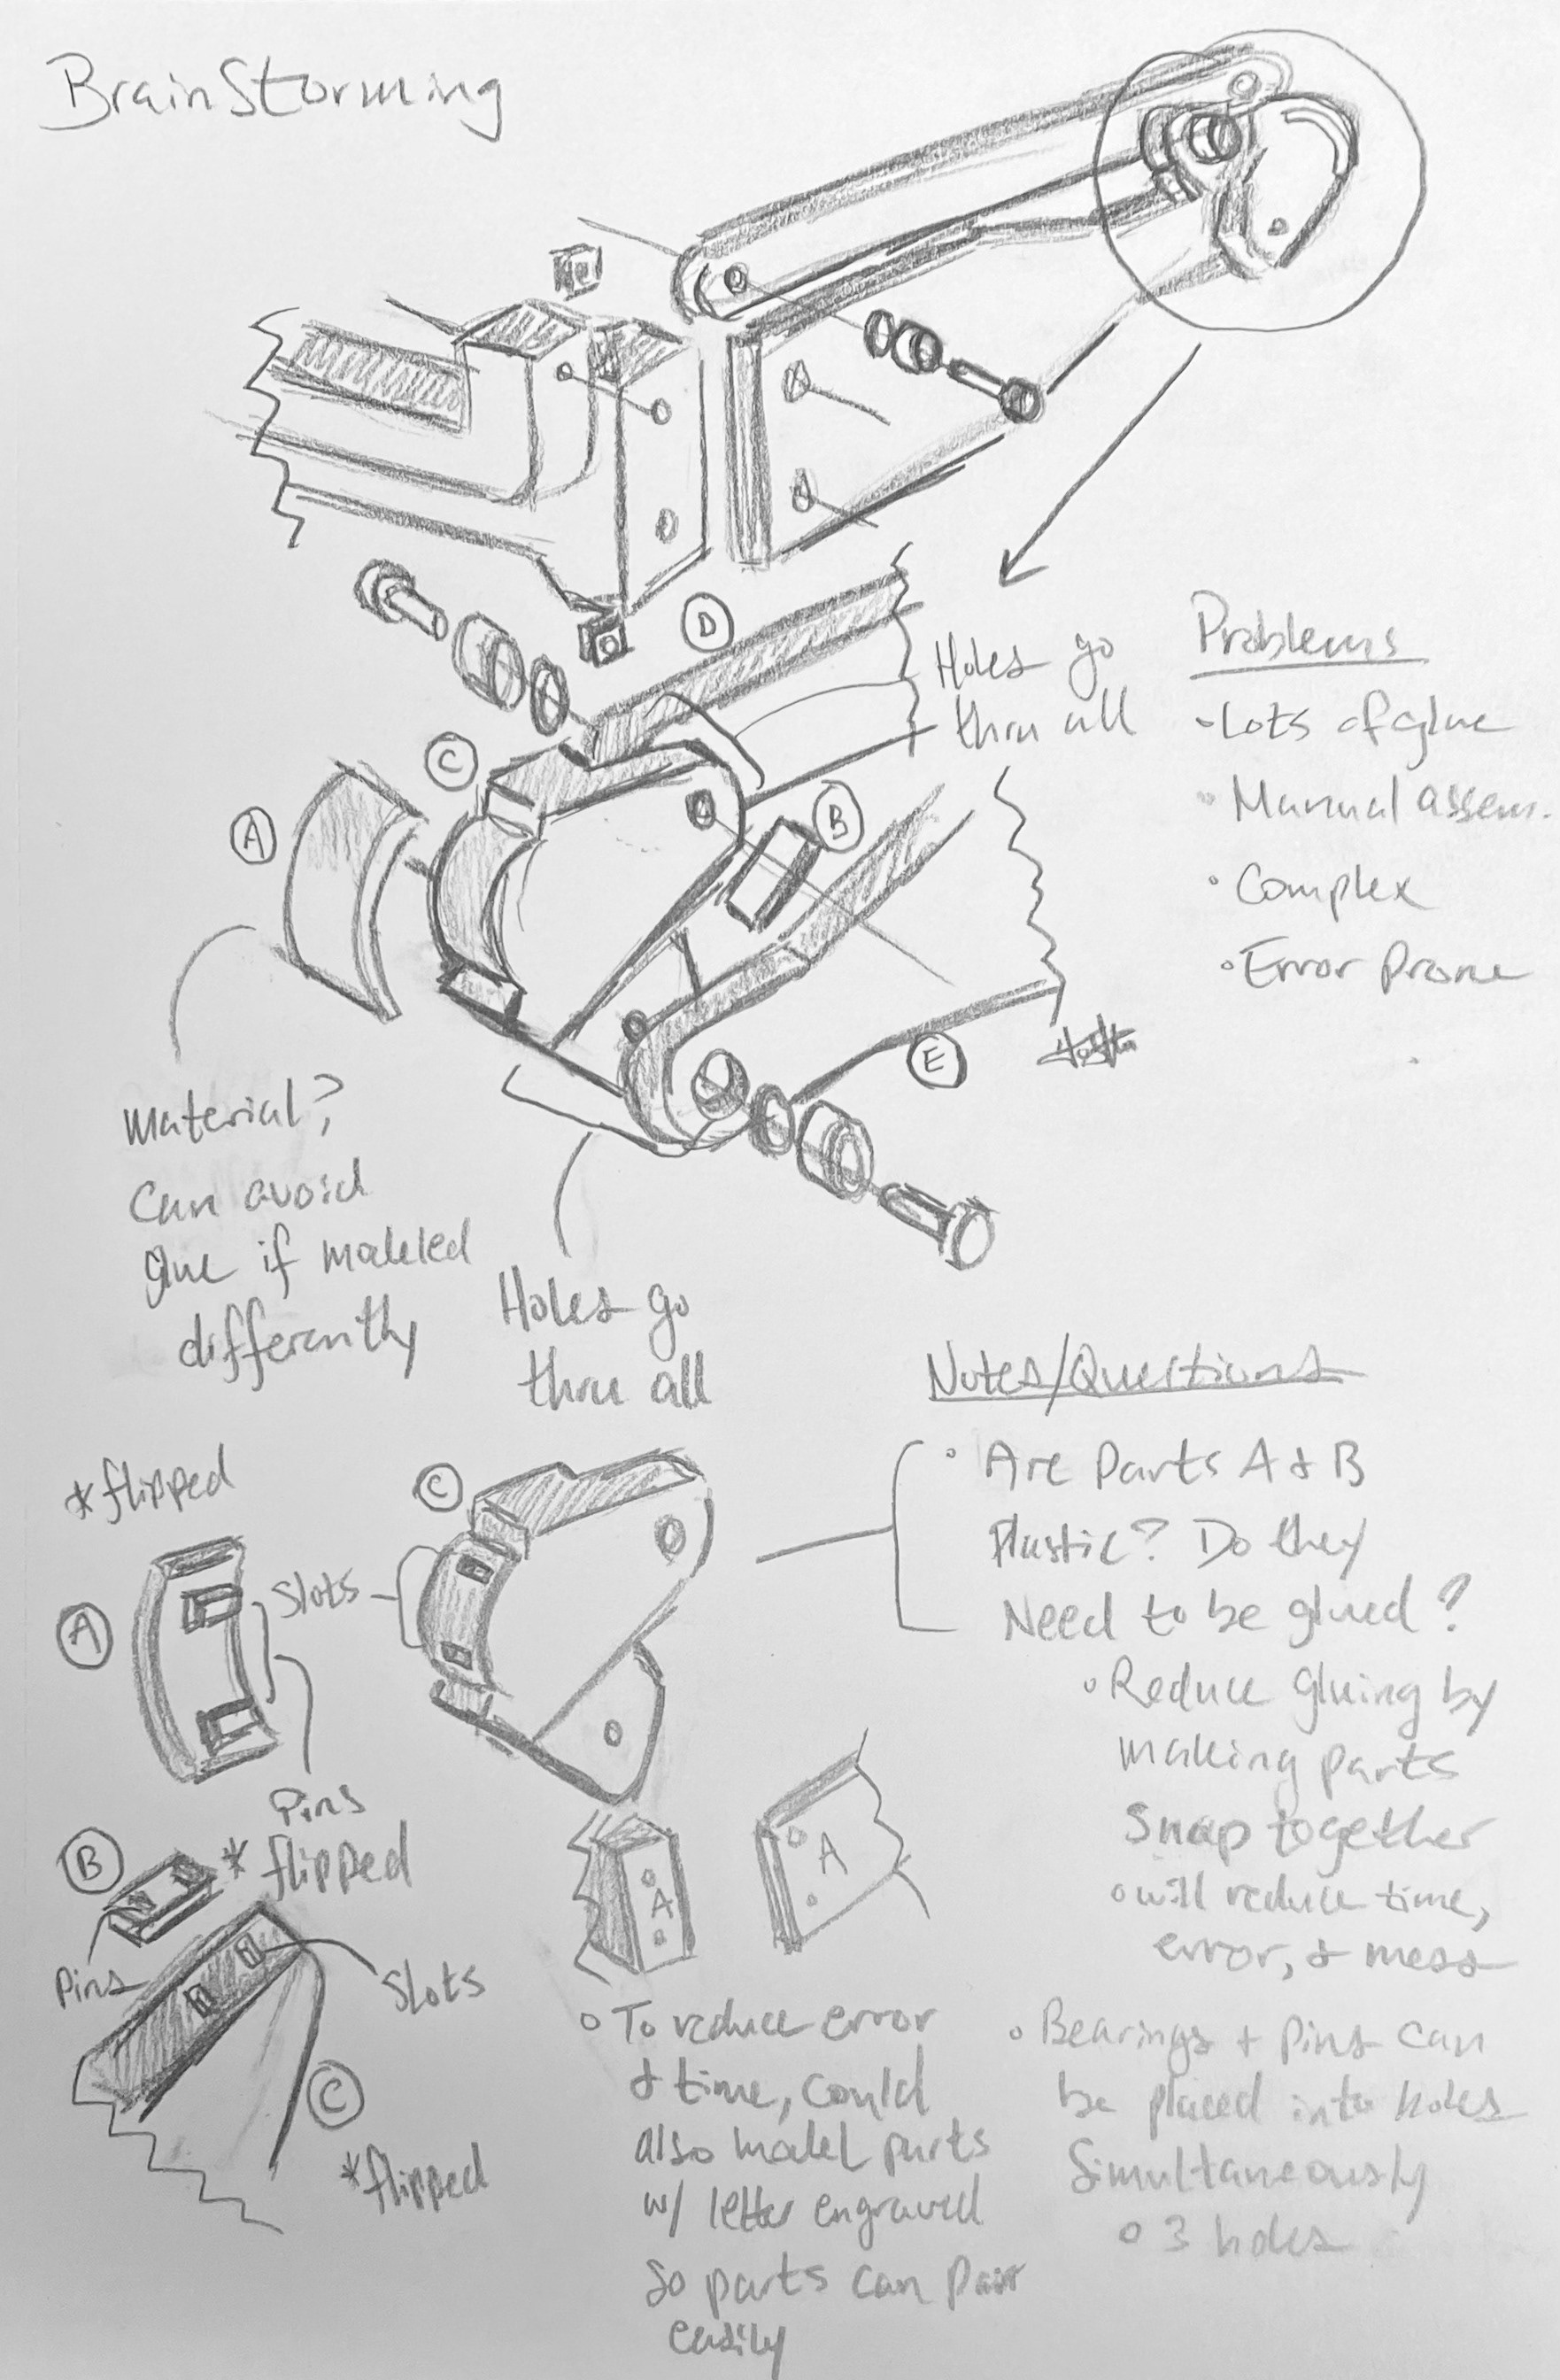 BrainStorming
D
Holes go
thru all
Problems
• Lots of glue
• Manual assem.
• Complex
• Error Prone
C
A
B
E
Material?
Can avoid
glue if modeled
differently
Holes go
thru all
Notes/Questions
• Are Parts A & B
Plastic? Do they
Need to be glued?
• Reduce gluing by
making parts
Snap together
• will reduce time,
error, & mess
• Bearings + Pins can
be placed into holes
Simultaneously
• 3 holes
*flipped
C
Slots
A
Pins
B
* flipped
Pins
Slots
C
*flipped
A
A
• To reduce error
& time, could
also model parts
w/ letter engraved
So parts can pair
easily